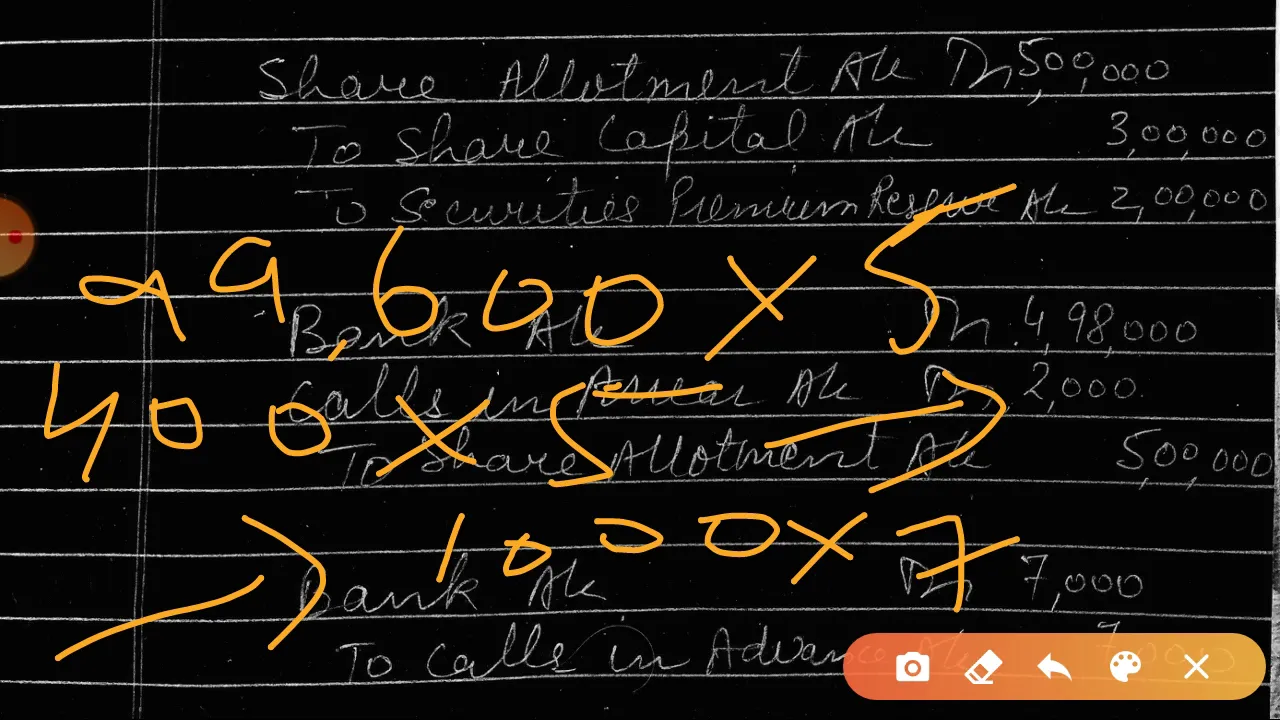 Share Allotment A/c Dr. 5,00,000
To Share Capital A/c 3,00,000
To Securities Premium Reserve A/c 2,00,000
99,600 x 5
Bank A/c Dr. 4,98,000
Calls in Arrear A/c Dr. 2,000
400 x 5
To Share Allotment A/c 5,00,000
1000 x 7
Bank A/c Dr 7,000
To Calls in Advance A/c 7,000